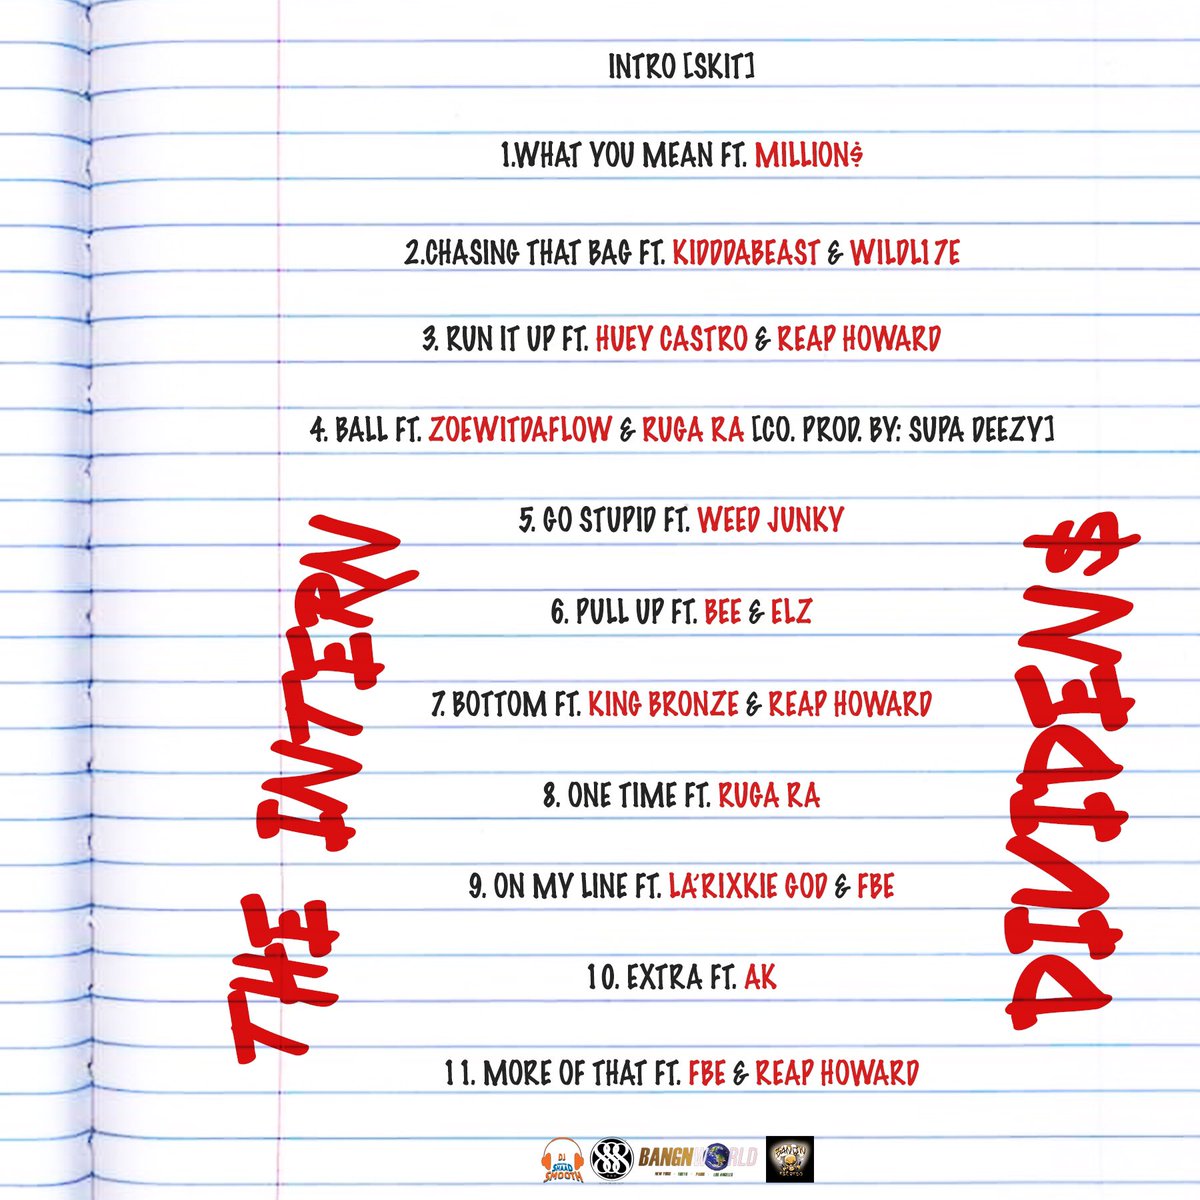 INTRO [SKIT]
1.WHAT YOU MEAN FT. MILLION$
2.CHASING THAT BAG FT. KIDDDABEAST & WILDL17E
3. RUN IT UP FT. HUEY CASTRO & REAP HOWARD
4. BALL FT. ZOEWITDAFLOW & RUGA RA [CO. PROD. BY: SUPA DEEZY]
5. GO STUPID FT. WEED JUNKY
6. PULL UP FT. BEE & ELZ
7. BOTTOM FT. KING BRONZE & REAP HOWARD
8. ONE TIME FT. RUGA RA
9. ON MY LINE FT. LA'RIXKIE GOD & FBE
10. EXTRA FT. AK
11. MORE OF THAT FT. FBE & REAP HOWARD
THE INTERN
DIVIDEND$
DJ
SHAAD
SMOOTH
BANGNWORLD